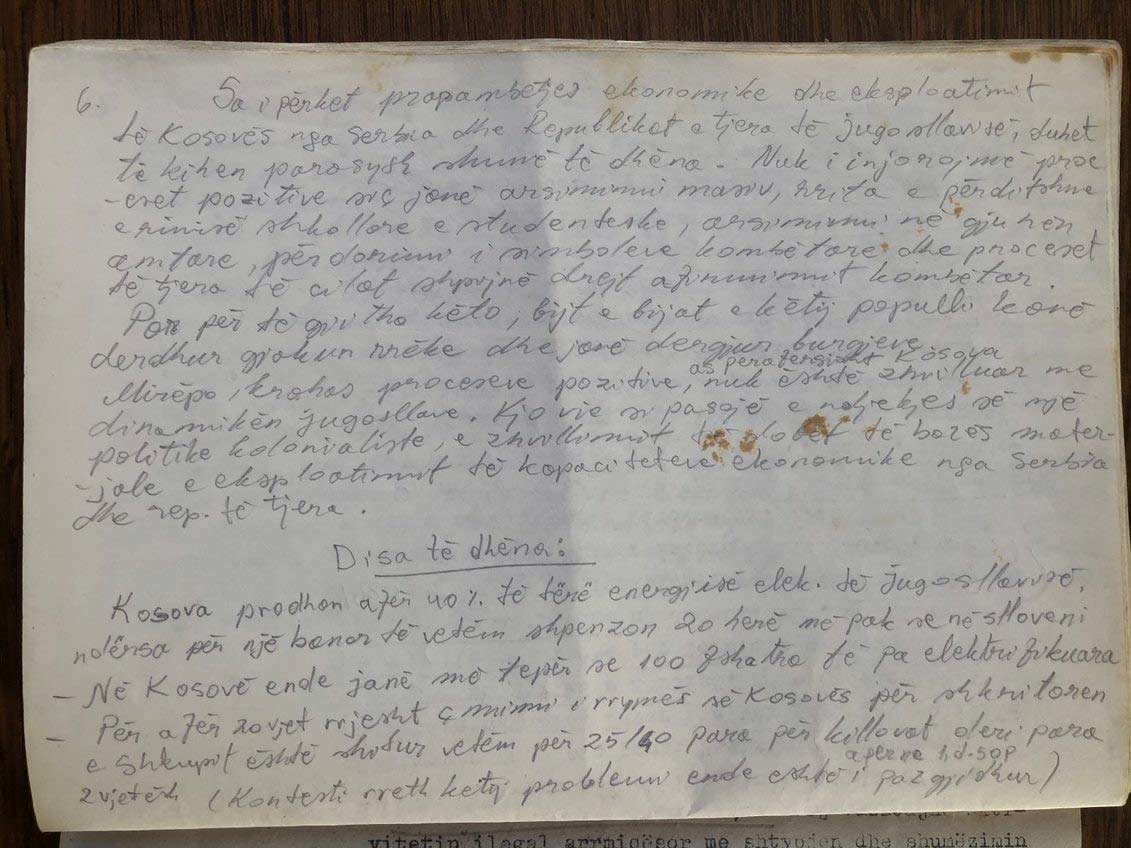 6. Sa i përket prapambetjes ekonomike dhe eksploatimit
të Kosovës nga Serbia dhe Republikat e tjera të jugosllavisë, duhet
të kihen parasysh shumë të dhëna. Nuk i injorojmë proc
-eset pozitive siç janë arsimimi masiv, rritja e përditshme
e rinisë shkollore e studenteske, arsimimi në gjuhën
amtare, përdorimi i simboleve kombëtare dhe proceset
të tjera të cilat shpijnë drejt afirmimit kombëtar.
Por për të gjitha këto, bijt e bijat e këtij populli kanë
derdhur gjakun rrëke dhe janë dergjur burgjeve.
as përafërsisht
Mirëpo, krahas proceseve pozitive, nuk është zhvilluar Kosova me
dinamikën jugosllave. Kjo vie si pasojë e ndjekjes së një
politike kolonialiste, e zhvillimit të dobët të bazës mater-
-jale e eksploatimit të kapaciteteve ekonomike nga Serbia
dhe rep. të tjera.
Disa të dhëna:
Kosova prodhon afër 40% të tërë energjisë elek. të jugosllavisë,
ndërsa për një banor të vetëm shpenzon 20 herë më pak se në slloveni
- Në Kosovë ende janë më tepër se 100 fshatra të pa elektrifikuara
- Për afër 20 vjet rrjesht çmimi i rrymës së Kosovës për shkritoren
e shkupit është shitur vetëm për 25/40 para për killovat deri para
2 vjetësh (Kontesti rreth ketij problemi ende është i pazgjidhur)
vitetin ilegal arrmiqësor me shtypjen dhe shumëzimin